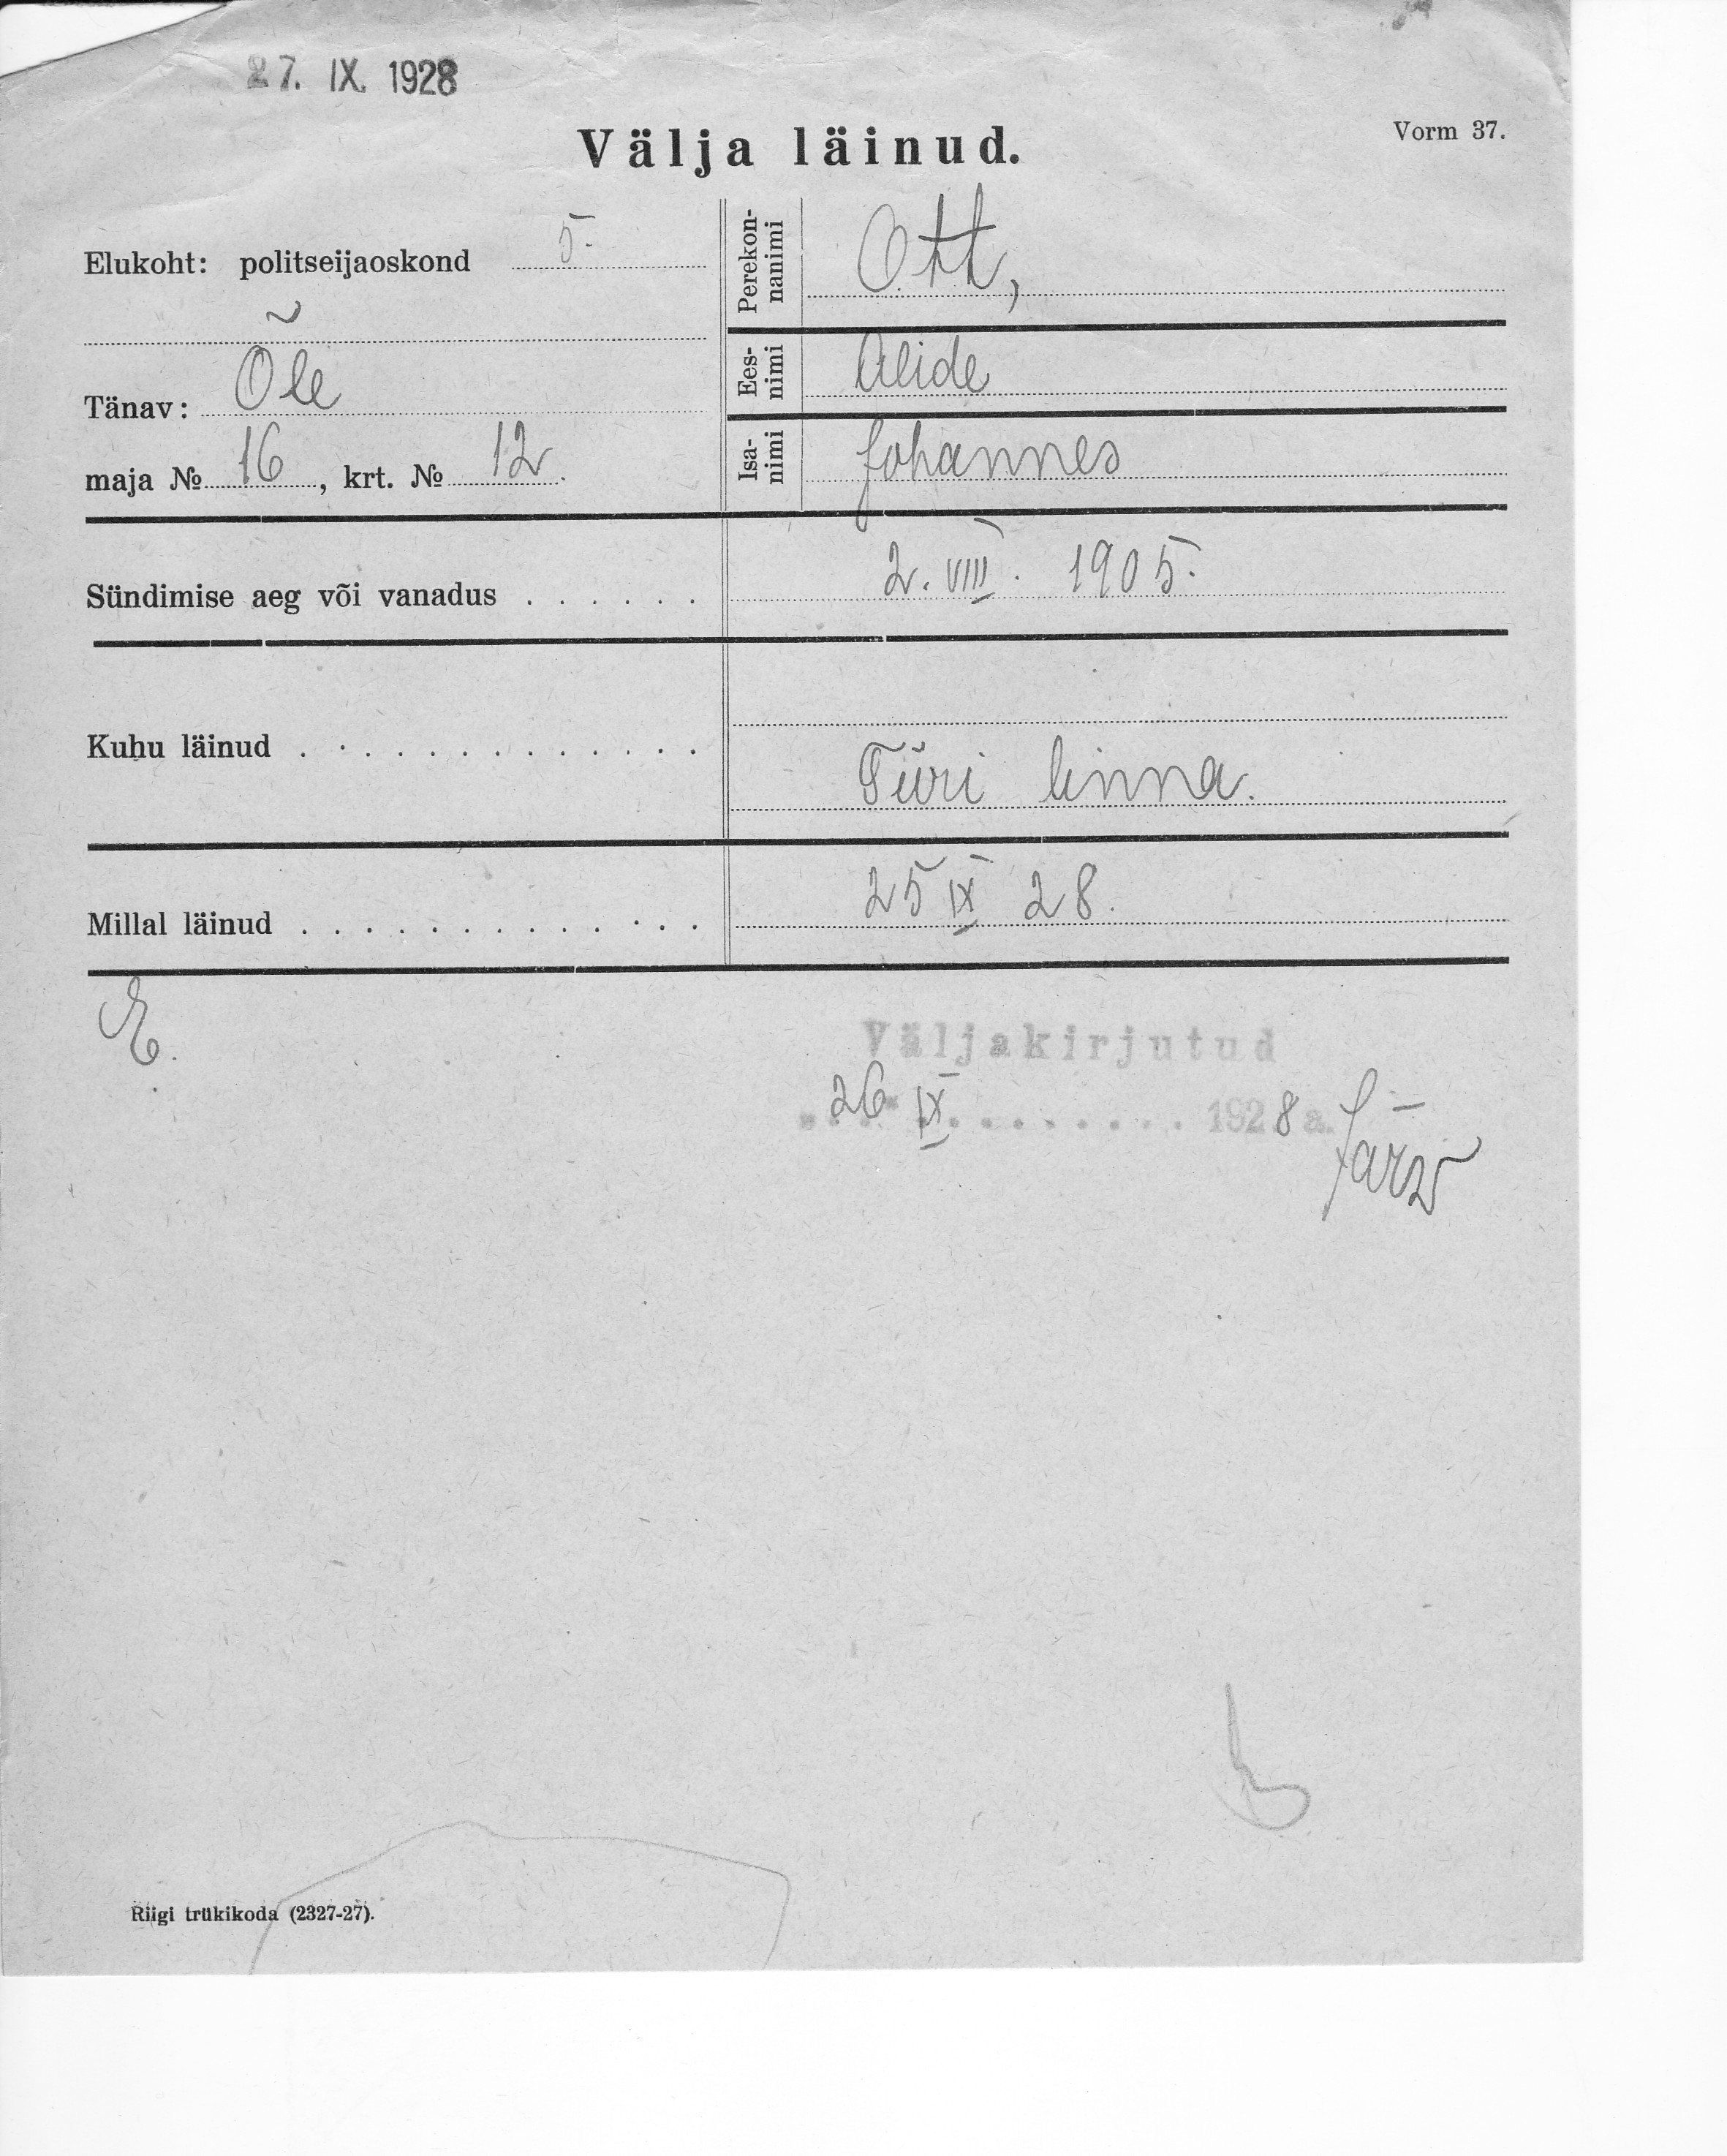 27. IX. 1928
Välja läinud.
Vorm 37.
Elukoht: politseijaoskond 5.
Tänav: Õle
maja № 16, krt. № 12.
Perekon-
nanimi
Ott,
Ees-
nimi
Alide
Isa-
nimi
Johannes
Sündimise aeg või vanadus . . . . . . 2. VIII. 1905.
Kuhu läinud . . . . . . . . . . . . .
Türi linna.
Millal läinud . . . . . . . . . . . . . 25 IX 28.
Väljakirjutud
"26" IX . . . . . . . . 1928 a.
Järv
Riigi trükikoda (2327-27).